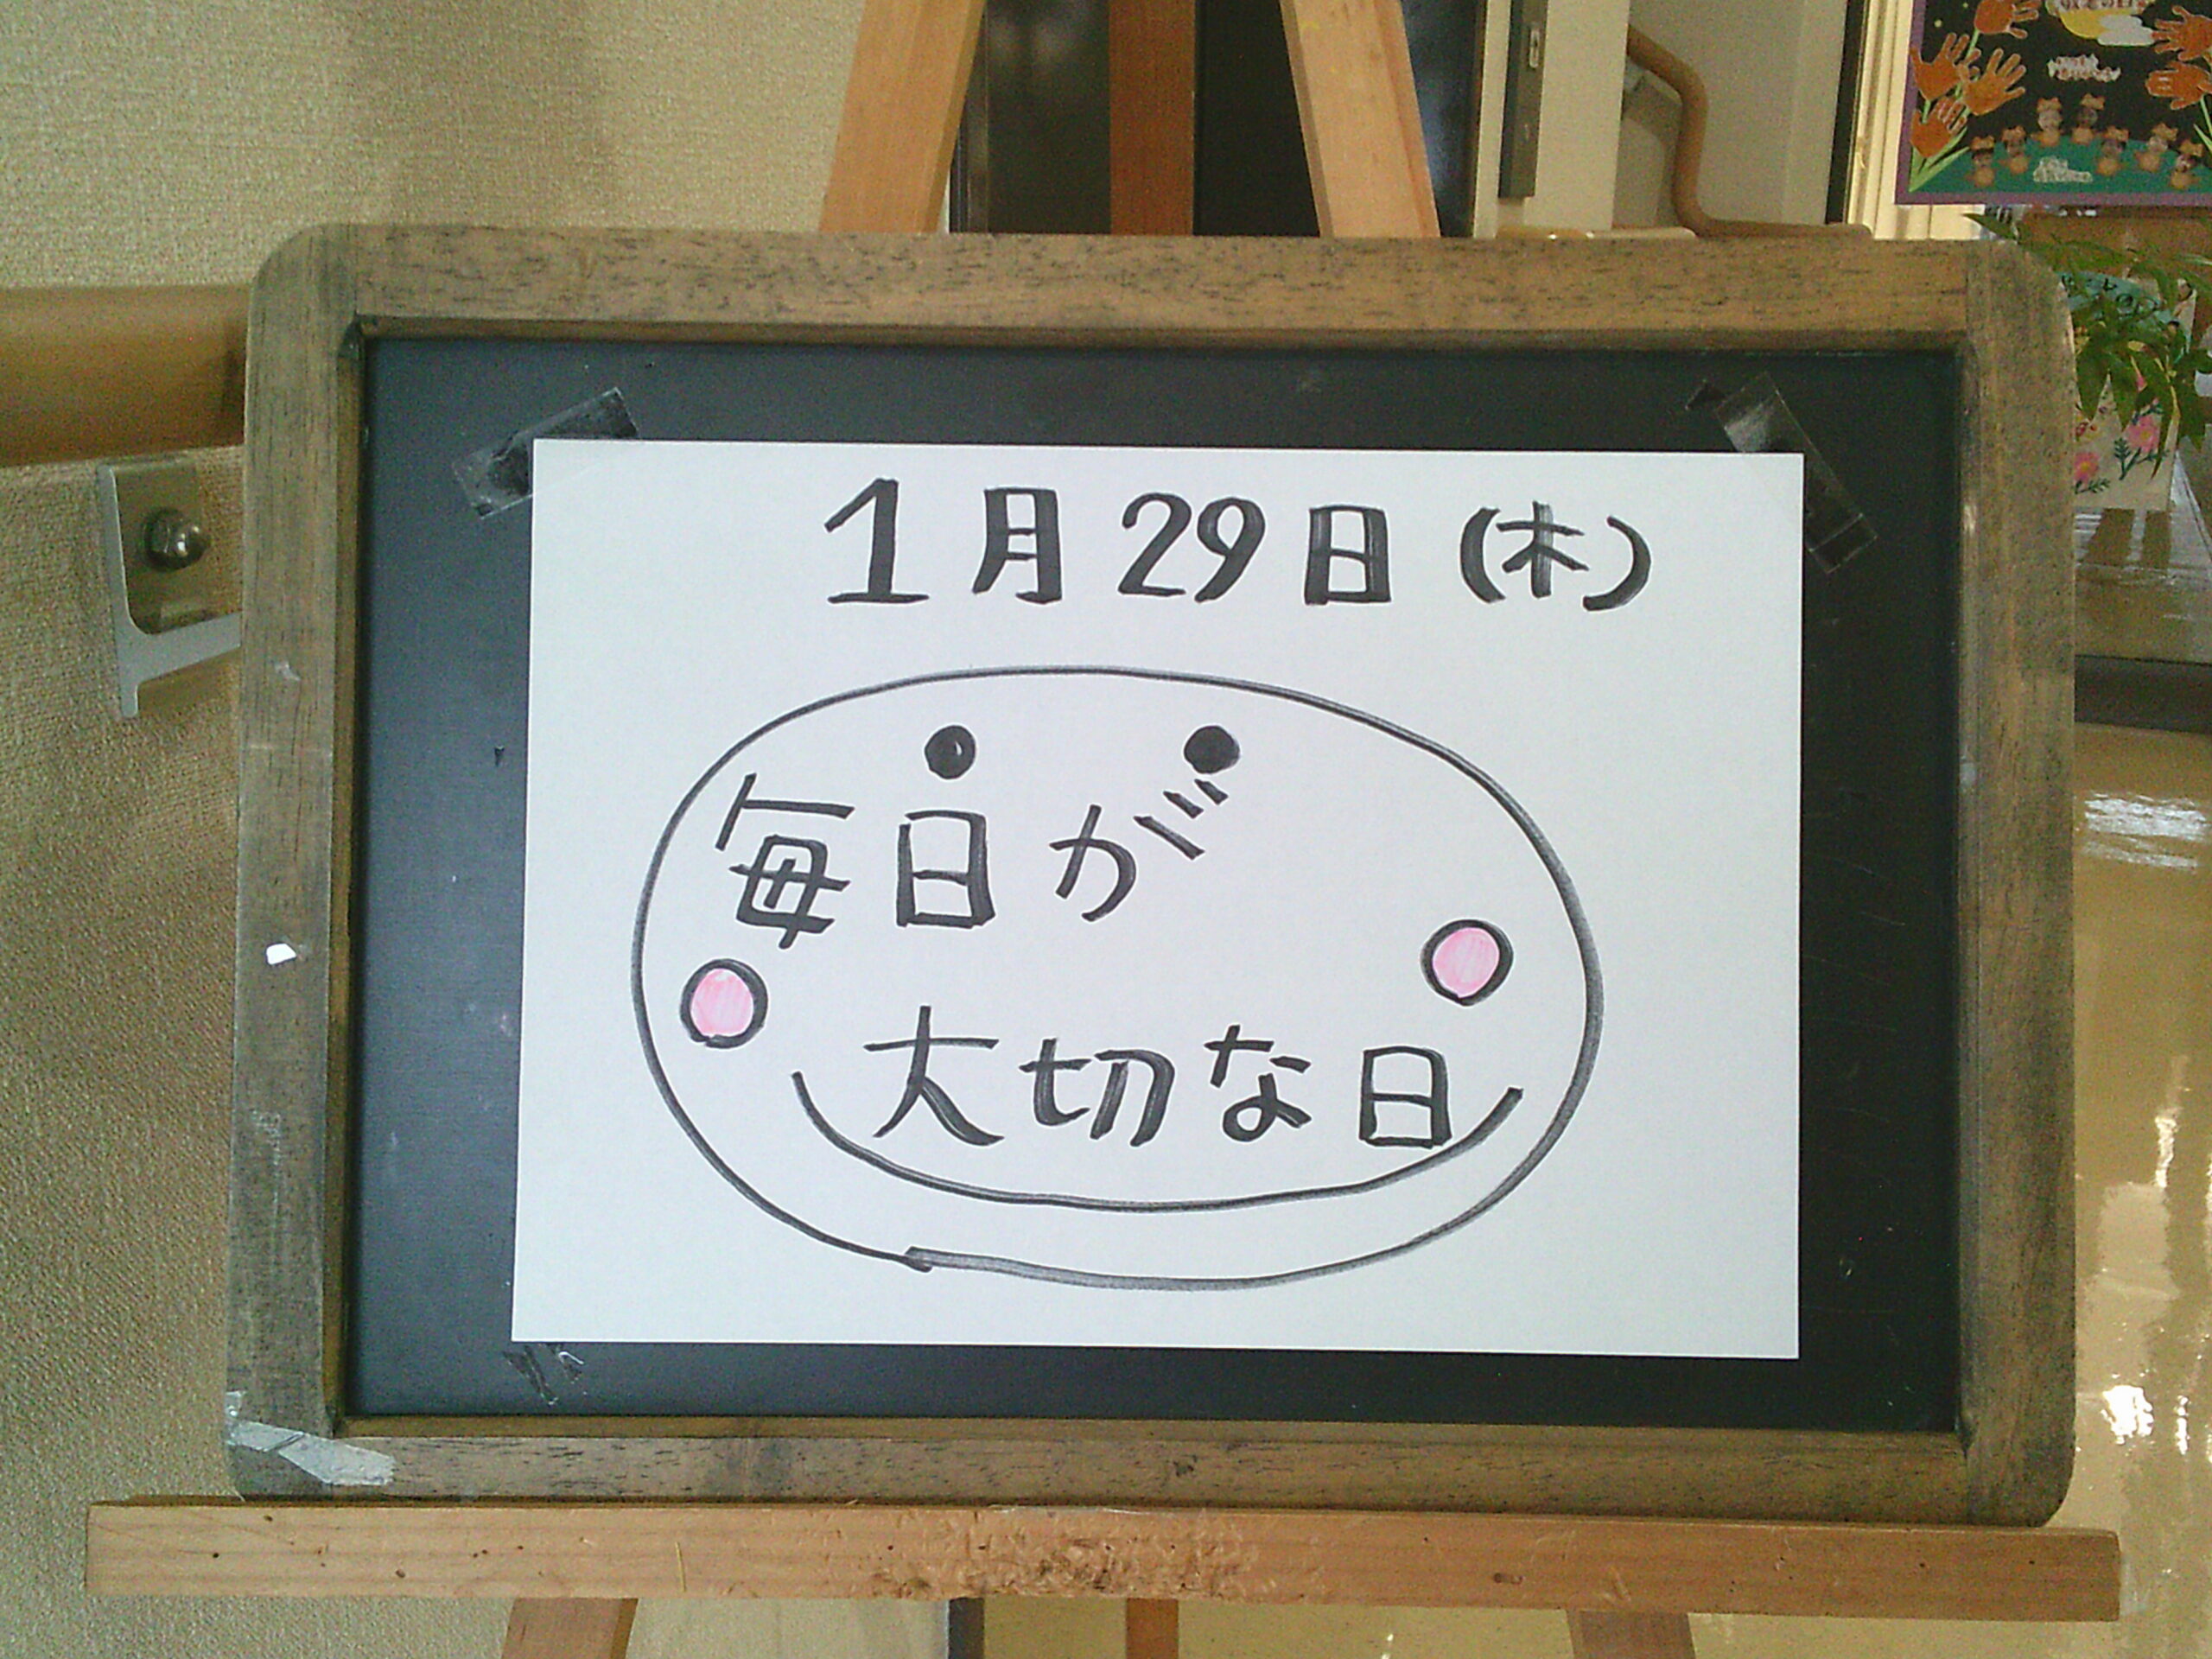 1月29日(木)
毎日が
大切な日